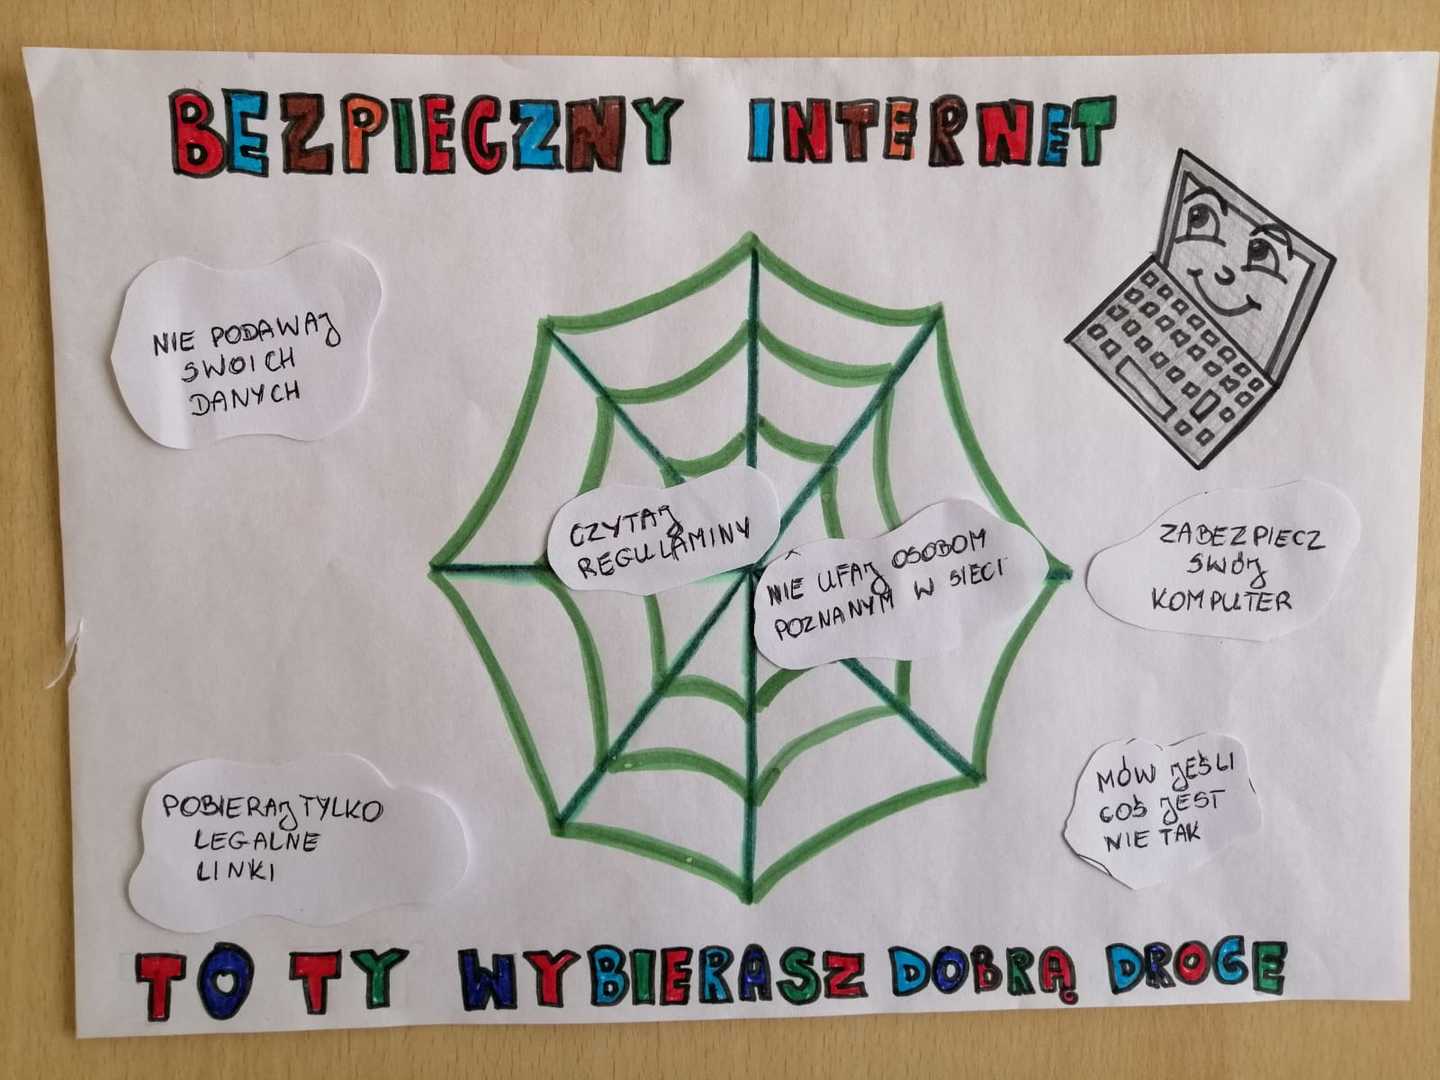 BEZPIECZNY INTERNET
NIE PODAWAJ
SWOICH
DANYCH
CZYTAJ
REGULAMINY
NIE UFAJ OSOBOM
POZNANYM W SIECI
ZABEZPIECZ
SWÓJ
KOMPUTER
POBIERAJ TYLKO
LEGALNE
LINKI
MÓW JEŚLI
COŚ JEST
NIE TAK
TO TY WYBIERASZ DOBRĄ DROGE